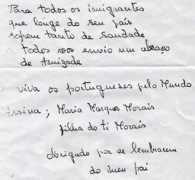 Para todos os imigrantes
que longe do seu país
sofrem tanto de saudade
Todos vos envio um abraço
de Amizade
viva os portugueses pelo Mundo
assina; Maria Marques Morais
filha do ti Morais
obrigado por se lembrarem
do meu pai